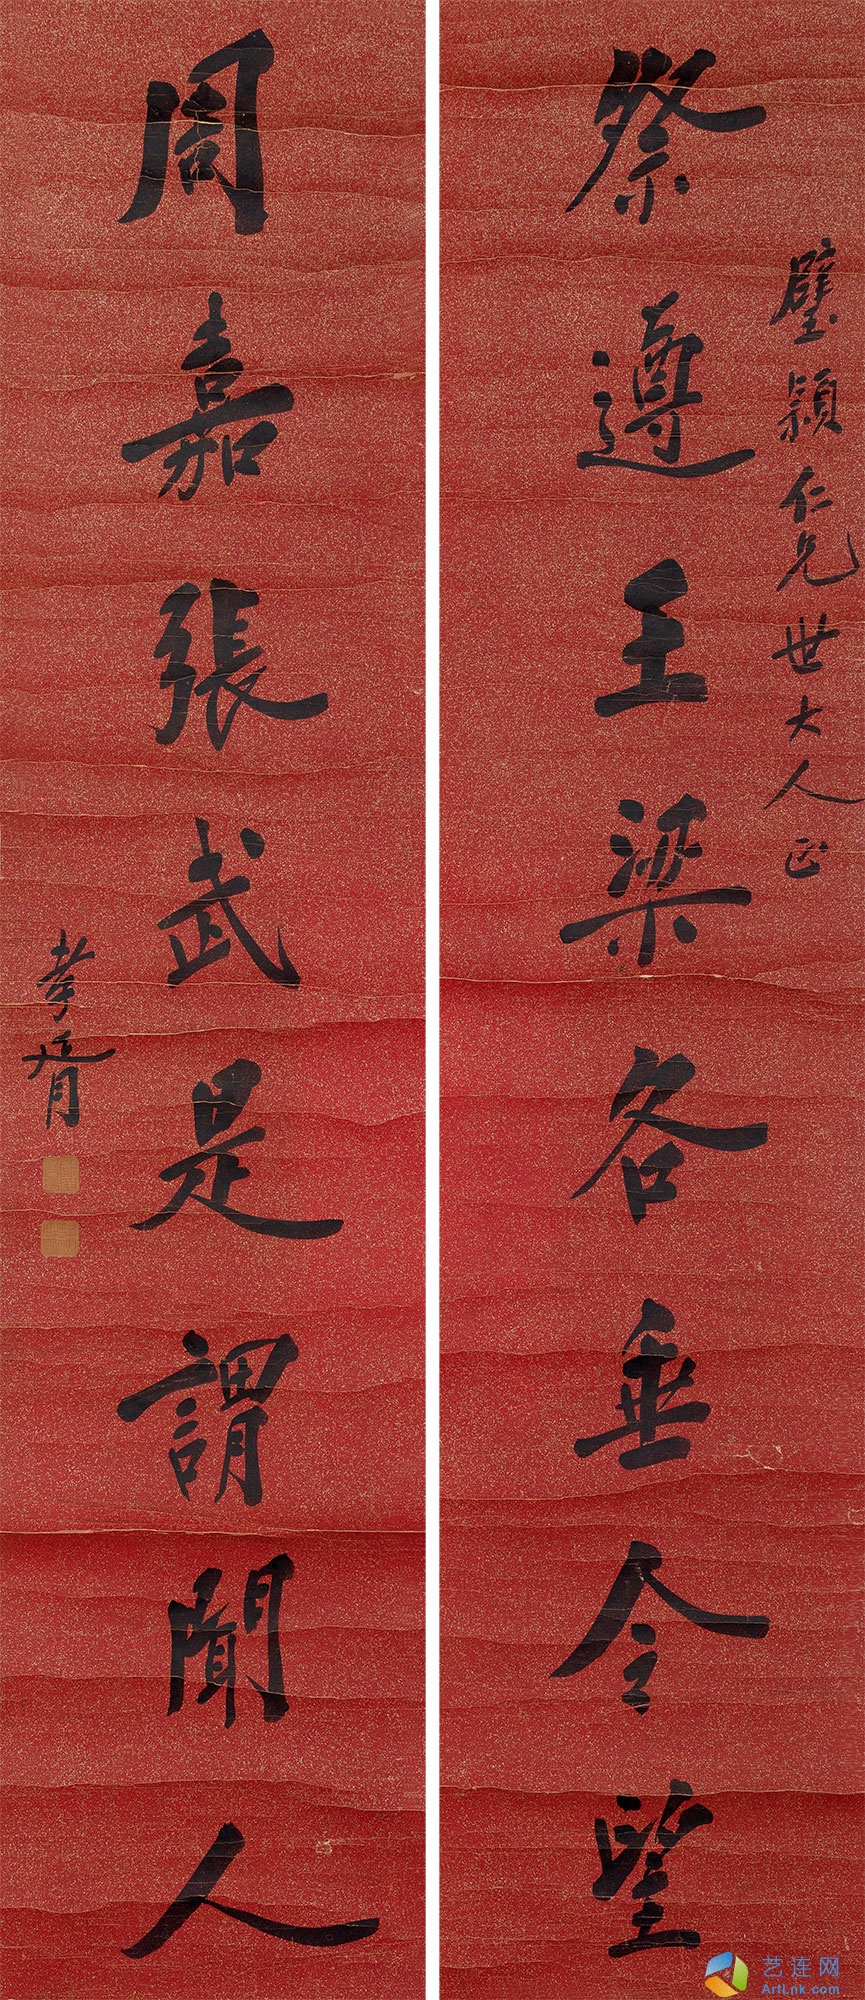 祭遵王梁各垂令望
璧颖仁兄世大人正
周嘉張武是謂聞人
孝胥
艺连网
ArtLnk.com